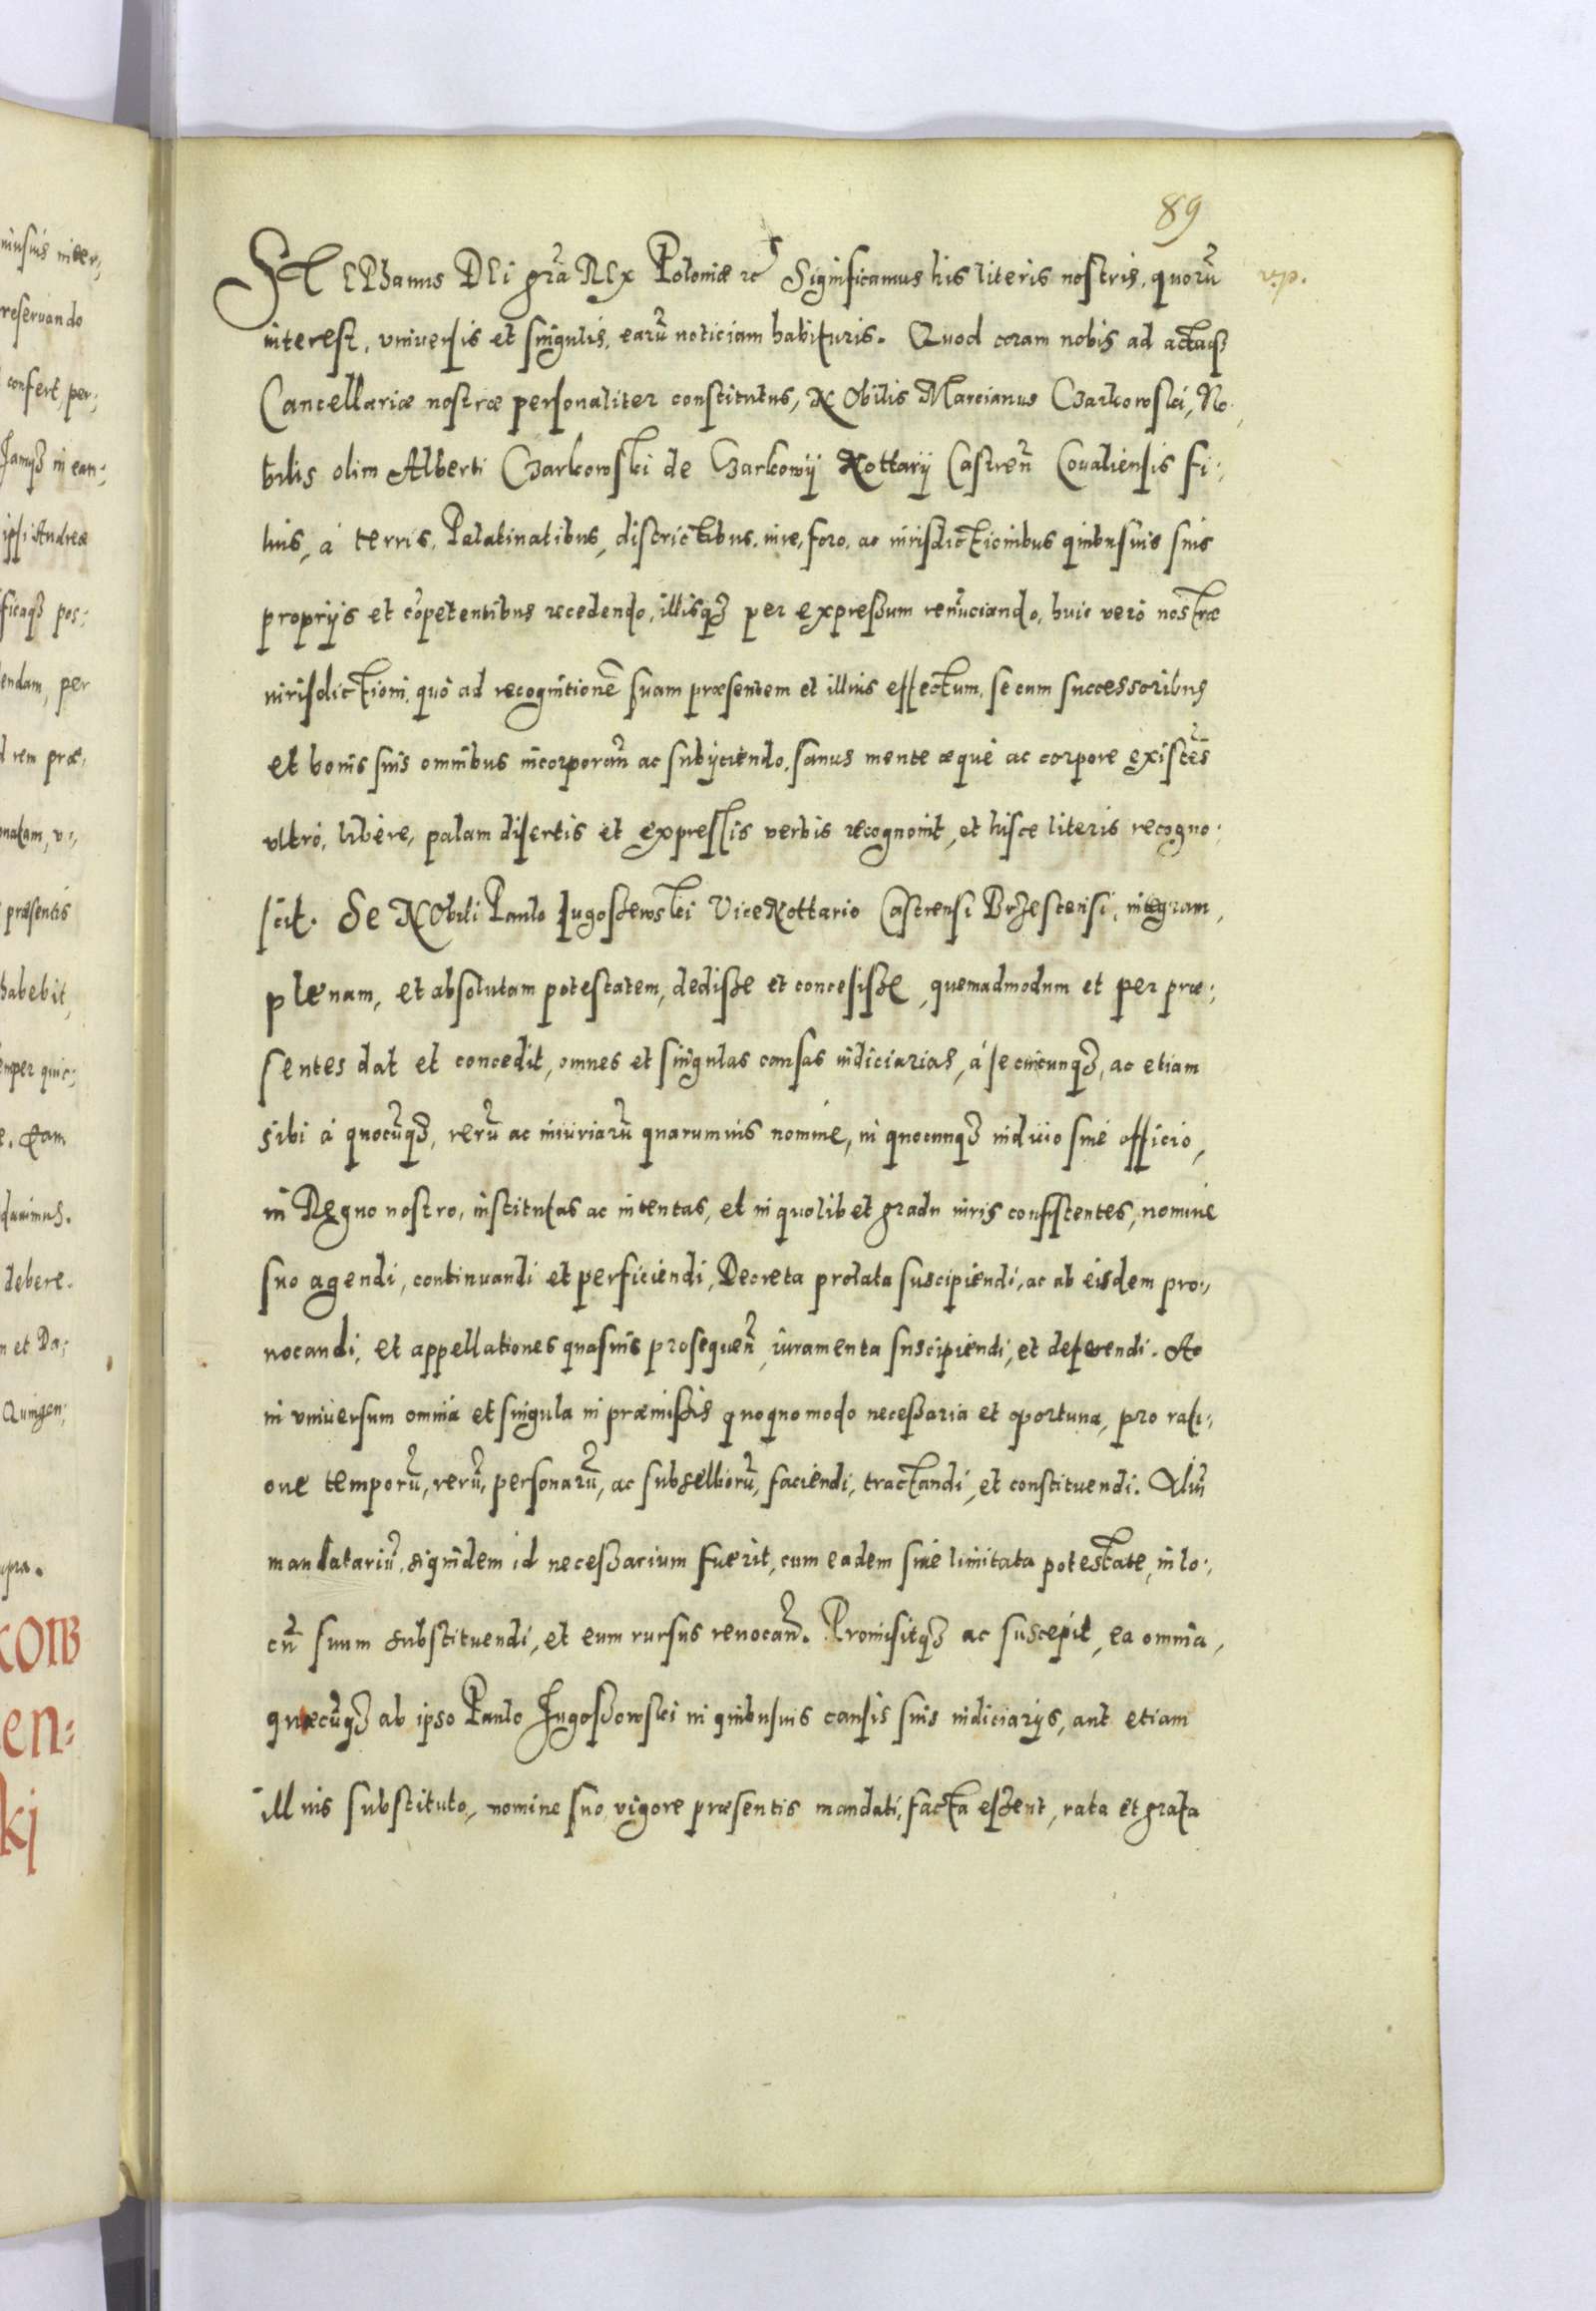 89
STEPhanus DEi gra͂ REx Poloniæ ⁊c Significamus his literis nostris, quoru͂
v.p.
interest, vniuersis et singulis, earu͂ noticiam habituris. Quod coram nobis ad actaqȝ
Cancellariæ nostræ personaliter constitutus, NObilis Marcianus Czarkowski, No,
bilis olim Alberti Czarkowski de Czarkowy Nottarij Castren͂ Coualiensis fi:,
lius, á terris, Palatinatibus, districtibus, iure, foro, ac iurisdictionibus quibusuis suis
proprijs et co͂petentibus recedendo, illisqȝ per expreßum renu͂ciando, huic veró nostræ
iurisdictioni, quó ad recognitione͂ suam præsentem et illius effectum, se cum successoribus
et bonis suis omnibus incorporan͂ ac subijciendo, sanus mente æqué ac corpore existe͂s
vltró, libére, palam disertis et expressis verbis recognouit, et hisce literis recogno:
scit. Se NObili Paulo Jugoszewski ViceNottario Castrensi Brzestensi, integram,
plenam, et absolutam potestatem, dediße et concesiße, quemadmodum et per præ:,
sentes dat et concedit, omnes et singulas causas iudiciarias, á se cuicunqȝ, ac etiam
sibi á quocu͂qȝ, reru͂ ac iniuriaru͂ quarumuis nomine, in quocunqȝ iudicio siué officio,
in Regno nostro, institutas ac intentas, et in quolibet gradu iuris consistentes, nomine
suo agendi, continuandi et perficiendi, Decreta prolata suscipiendi, ac ab eisdem pro:,
uocandi, et appellationes quasuis prosequen͂, iuramenta suscipiendi, et deferendi. Ac
in vniuersum omnia et singula in præmißis quoquomodo neceßaria et oportuna, pro rati:,
one temporu͂, reru͂, personaru͂, ac subselioru͂, faciendi, tractandi, et constituendi. Aliu͂
mandatariu͂, siquidem id neceßarium fuerit, cum eadem siué limitata potestate, in lo:,
cu͂ suum substituendi, et eum rursus reuocan͂. Promisitqȝ ac suscepit, ea omnia,
quæcu͂qȝ ab ipso Paulo Jugoszowski in quibusuis causis suis iudiciarijs, aut etiam
illius substituto, nomine suo vigore præsentis mandati, facta eßent, rata et grata